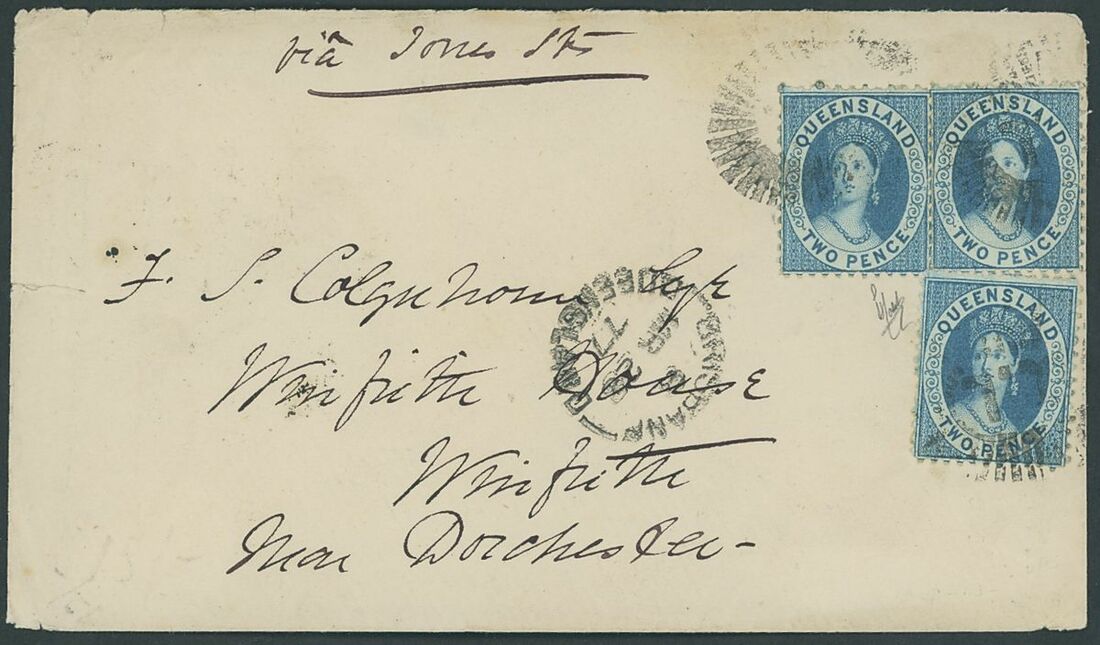 via Torres Sts
QUEENSLAND
TWO PENCE
QUEENSLAND
TWO PENCE
QUEENSLAND
TWO PENCE
F. S. Esqre
Winfrith House
Winfrith
Near Dorchester
QUEENSLAND
77